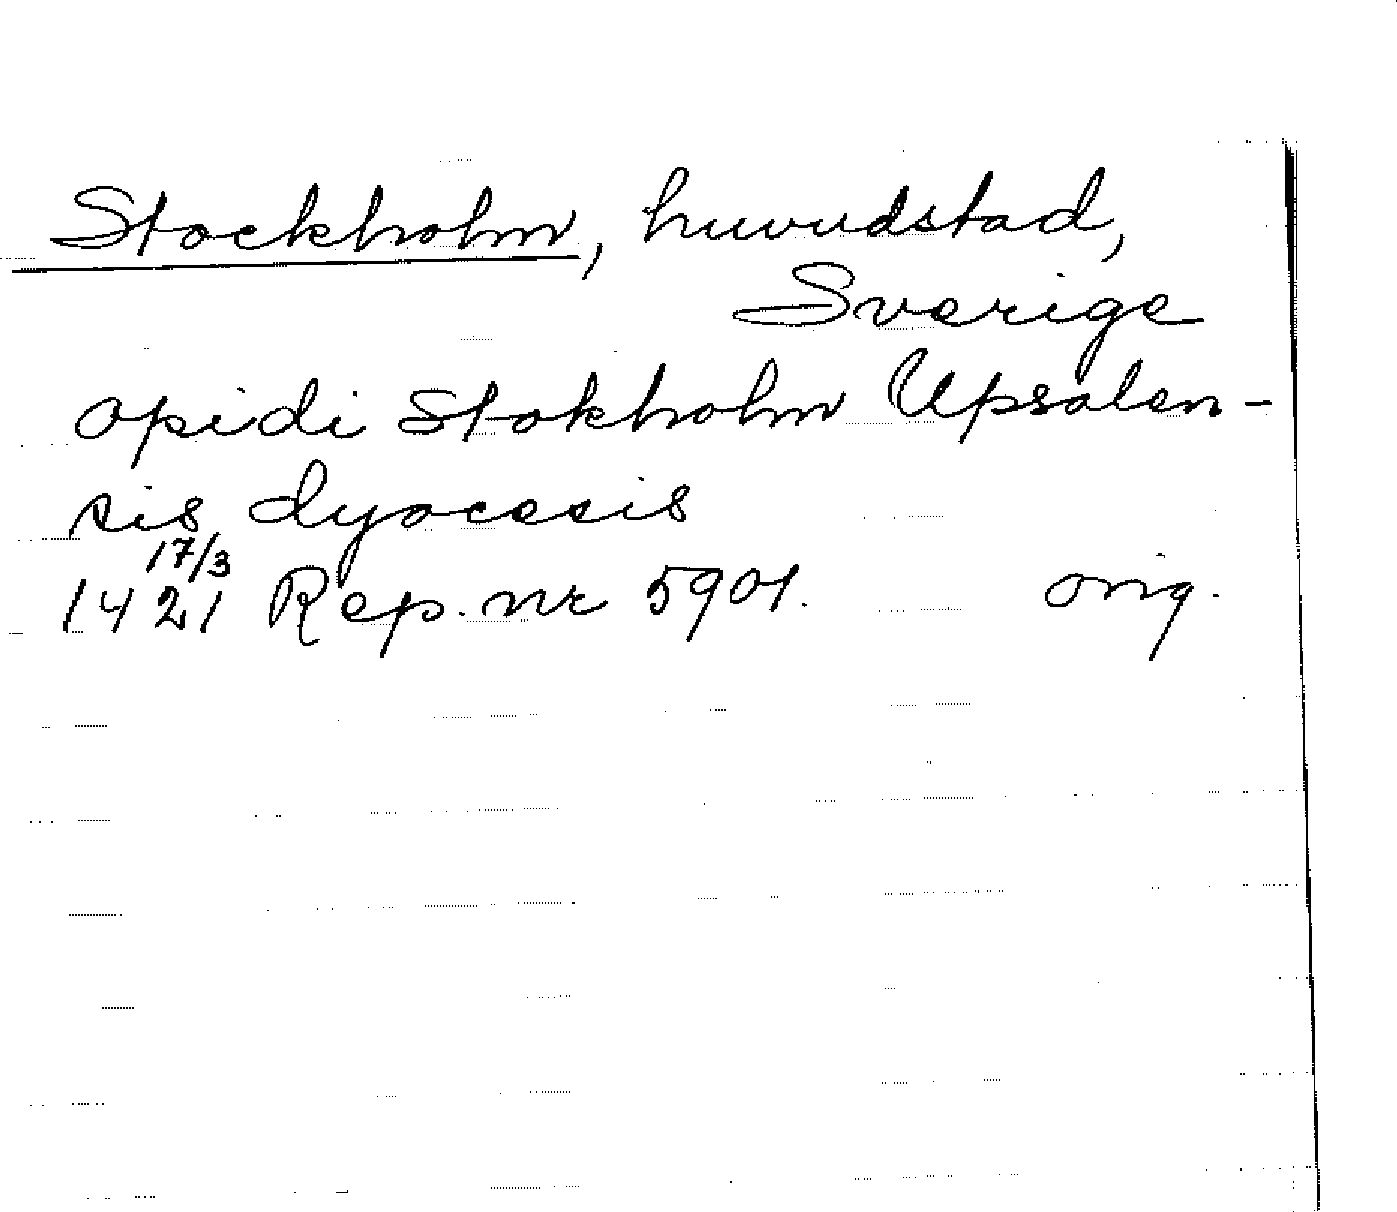 Stockholm, huvudstad,
Sverige
opidi Stokholm Upsalen-
sis dyocesis
17/3
1421 Rep. nr 5901. orig.